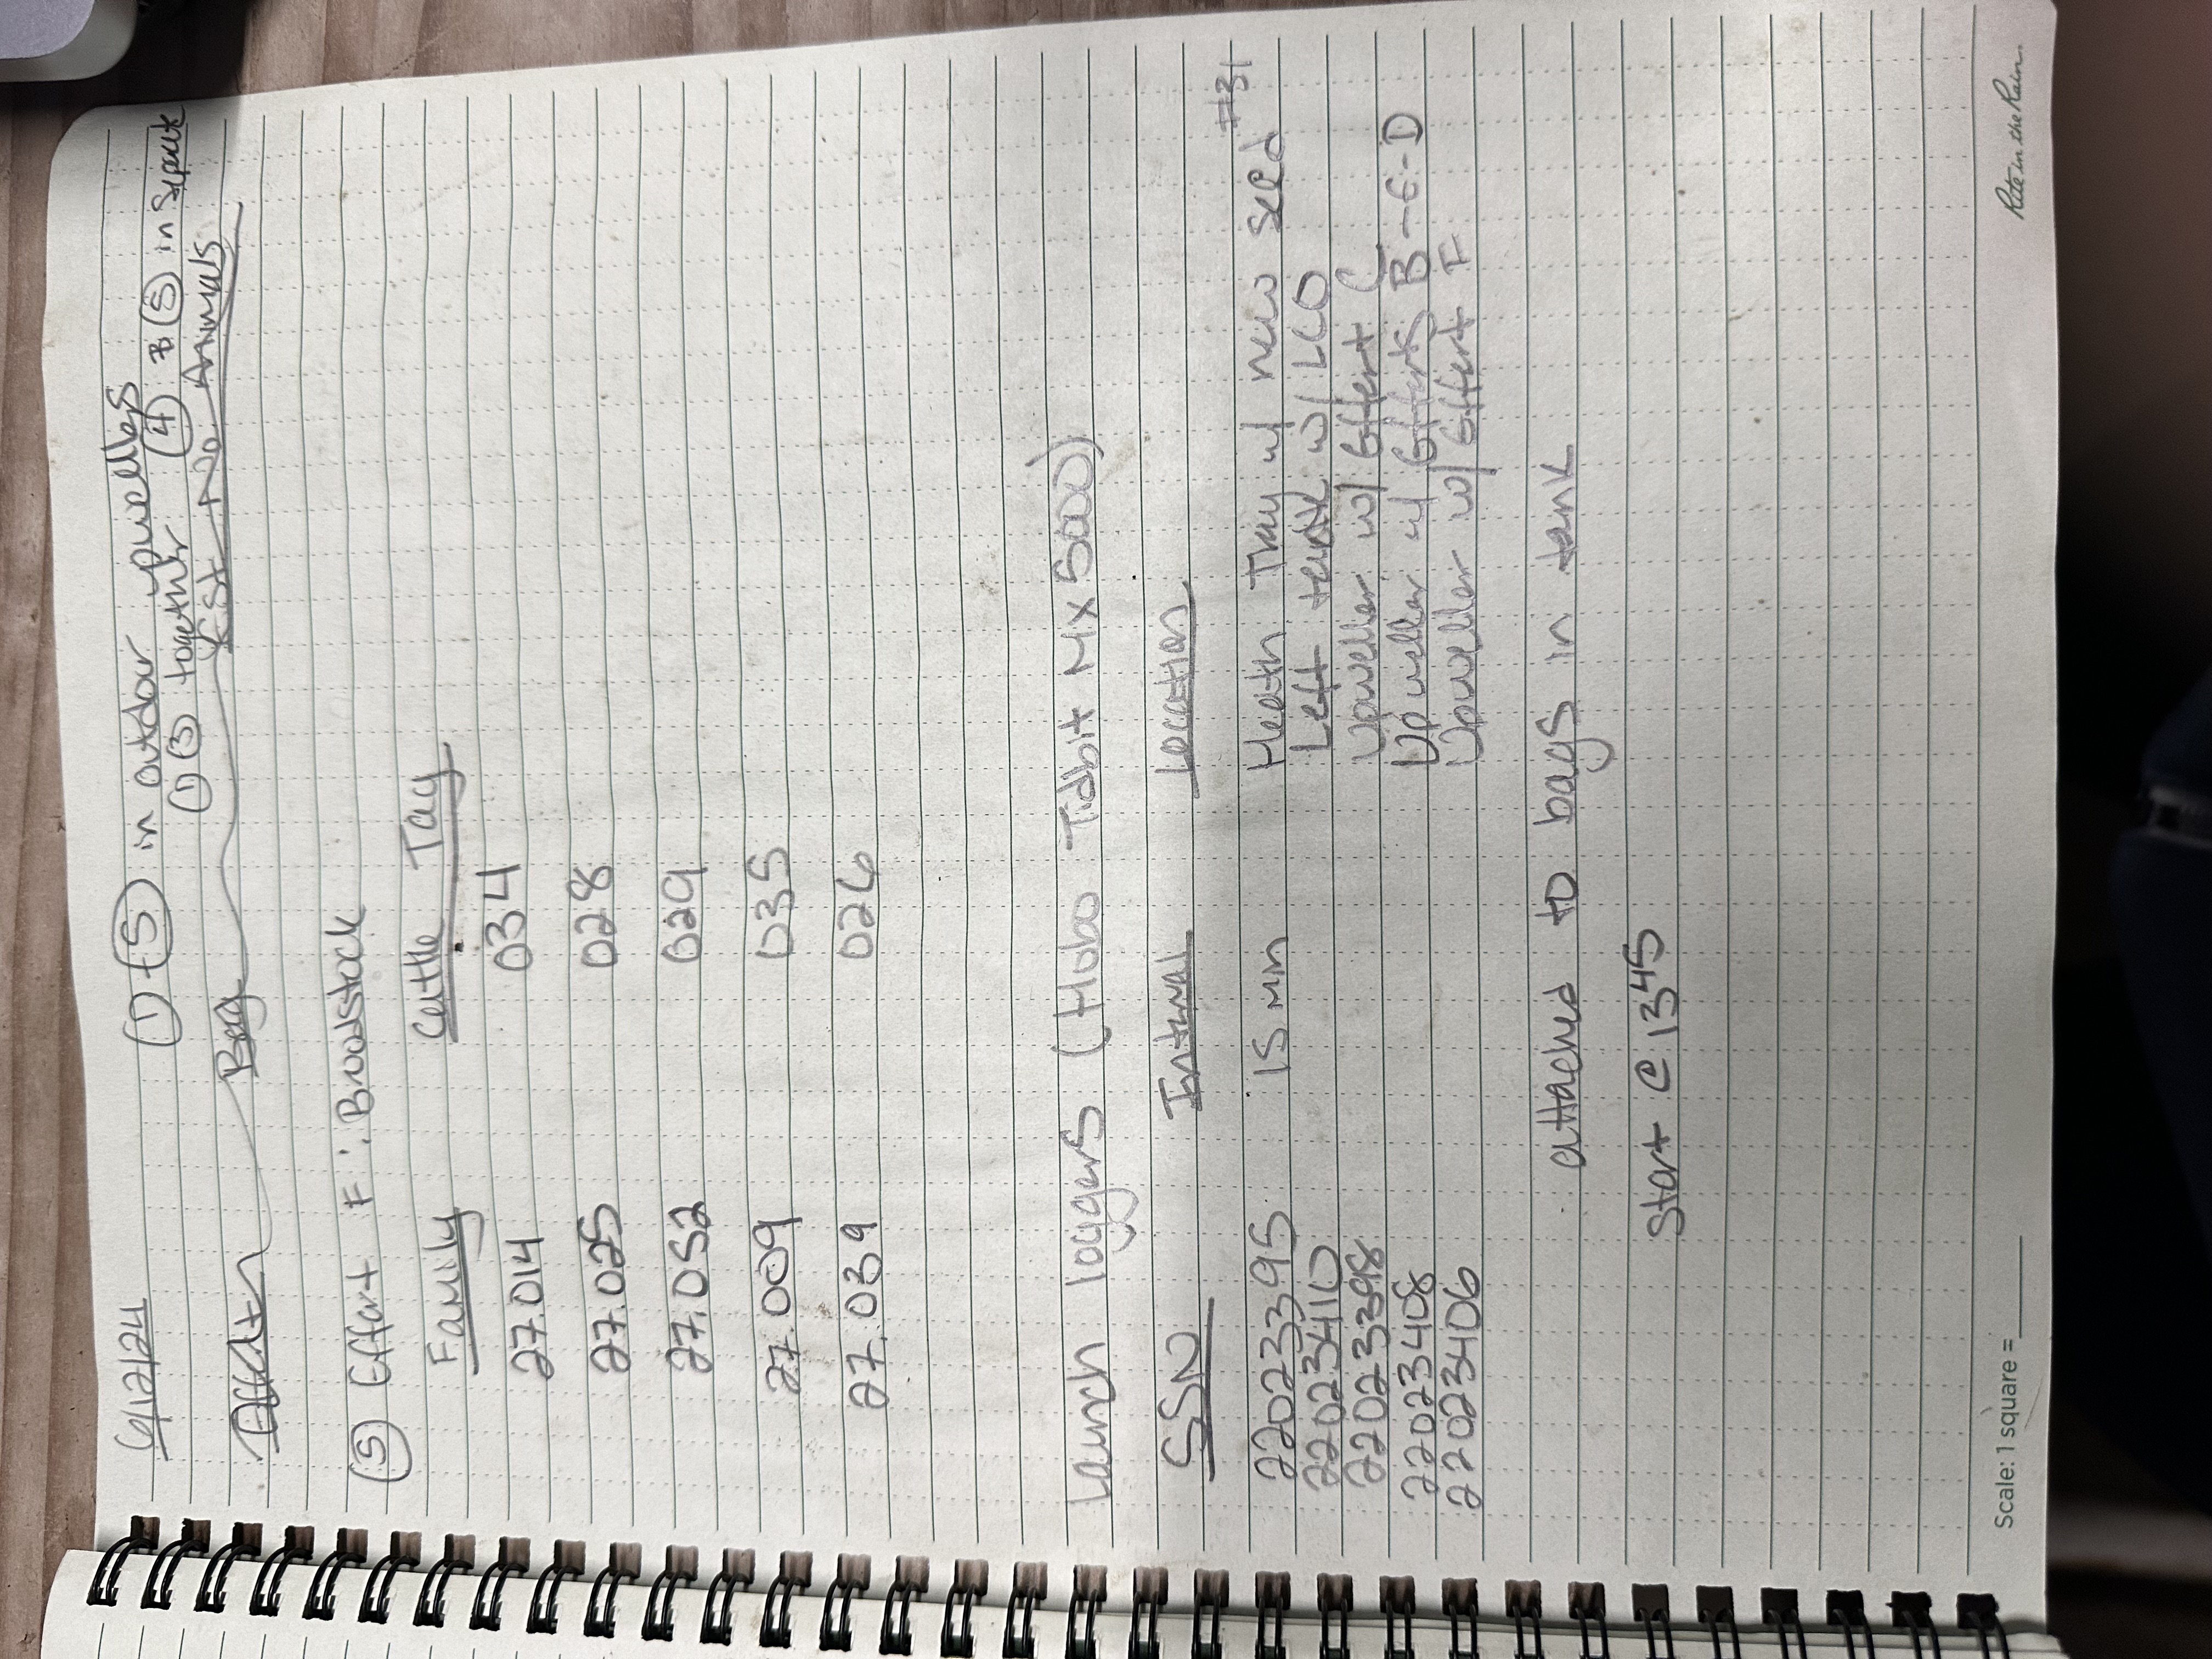 6/12/24
① - ⑤ in outdoor upwellers
① ③ together ④ & ⑤ in Separate
Effort Bag Est No. Animals
⑤ Effort F : Broodstock
Family Cattle Tag
27.014 034
27.025 028
27.052 029
27.009 035
27.039 026
Launch loggers (Hobo Tidbit MX 5000)
SSN Interval Location
22023395 15 min Heath Tray w/ new seed #31
22023410 Left tank w/ LCO
22023398 Upweller w/ Effort C
22023408 Upweller w/ Efforts B-E-D
22023406 Upweller w/ Effort F
attached to bags in tank
Start @ 1345
Scale: 1 square =
Rite in the Rain.